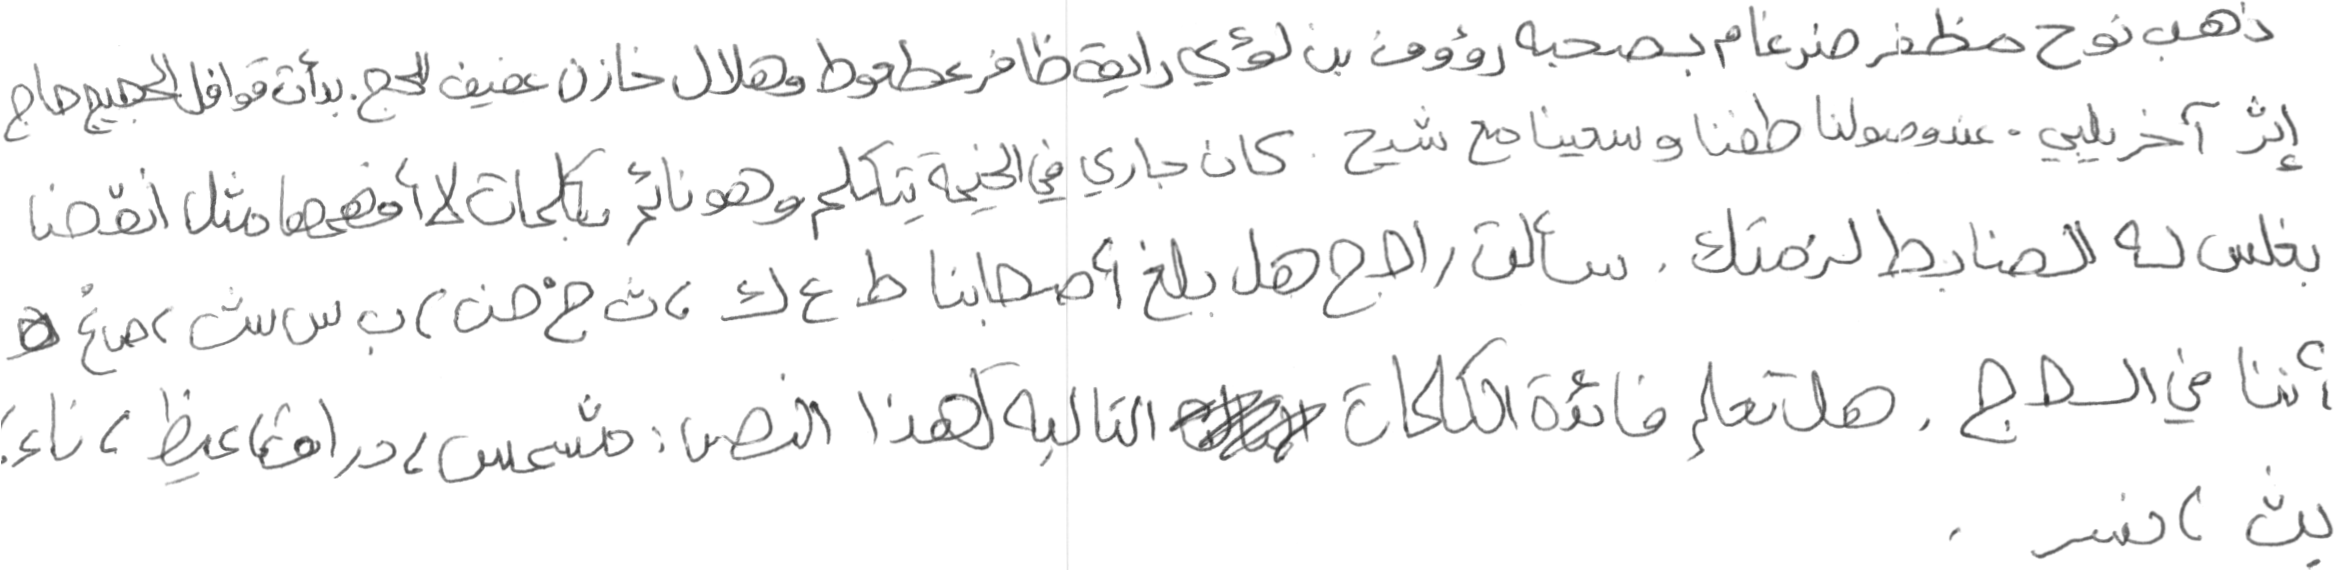 ذهب نوح مظفر ضرغام بصحبه رؤوف بن لؤي رايق ظافر عطعوط وهلال خازن عفيف للحج. بدأت قوافل الحجيج حاج
إثر آخر يلبي. عند وصولنا طفنا وسعينا مع شيح. كان جاري في الخيمة يتكلم وهو نائم بكلمات لا أفهمها مثل أنقضنا
بغلس له الضابط لزمتك. سألت راجح هل بلغ أصحابنا ط ع ك، ث خ ض، ب س ش، ص غ ه
أننا في ال. هل تعلم فائدة الكلمات التالية لهذا النص: مشمس، دراق، غيظ، ناء،
بث، نسر.